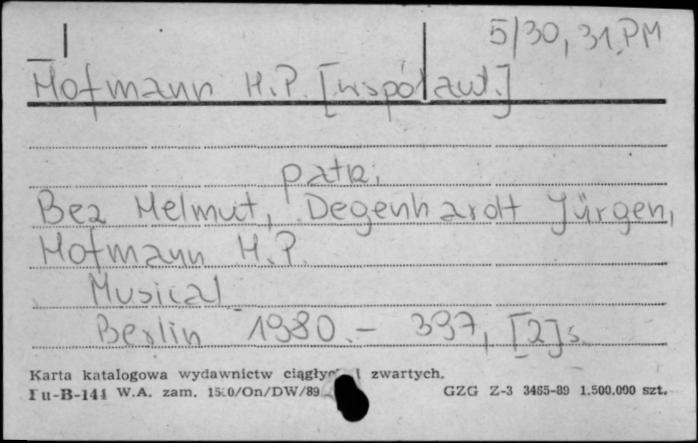 5/30, 31.PM
Hofmann H.P. [współaut.]
patrz
Bez Helmut, Degenhardt Jürgen,
Hofmann H.P.
Musical
Berlin 1980. – 397, [2] s.
Karta katalogowa wydawnictw ciągłych i zwartych.
Pu-B-144 W.A. zam. /On/DW/89 GZG Z-3 3465-89 1.500.000 szt.